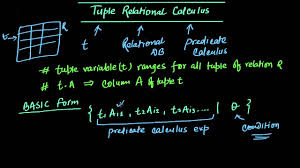 Tuple Relational Calculus
R
t→
t
Relational DB
Predicate Calculus
# tuple variable(t) ranges for all tuple of relation R
# t.A ⇒ column A of tuple t
BASIC Form { t₁Ai₁, t₂Ai₂, t₃Ai₃.... | θ }
predicate calculus exp
condition